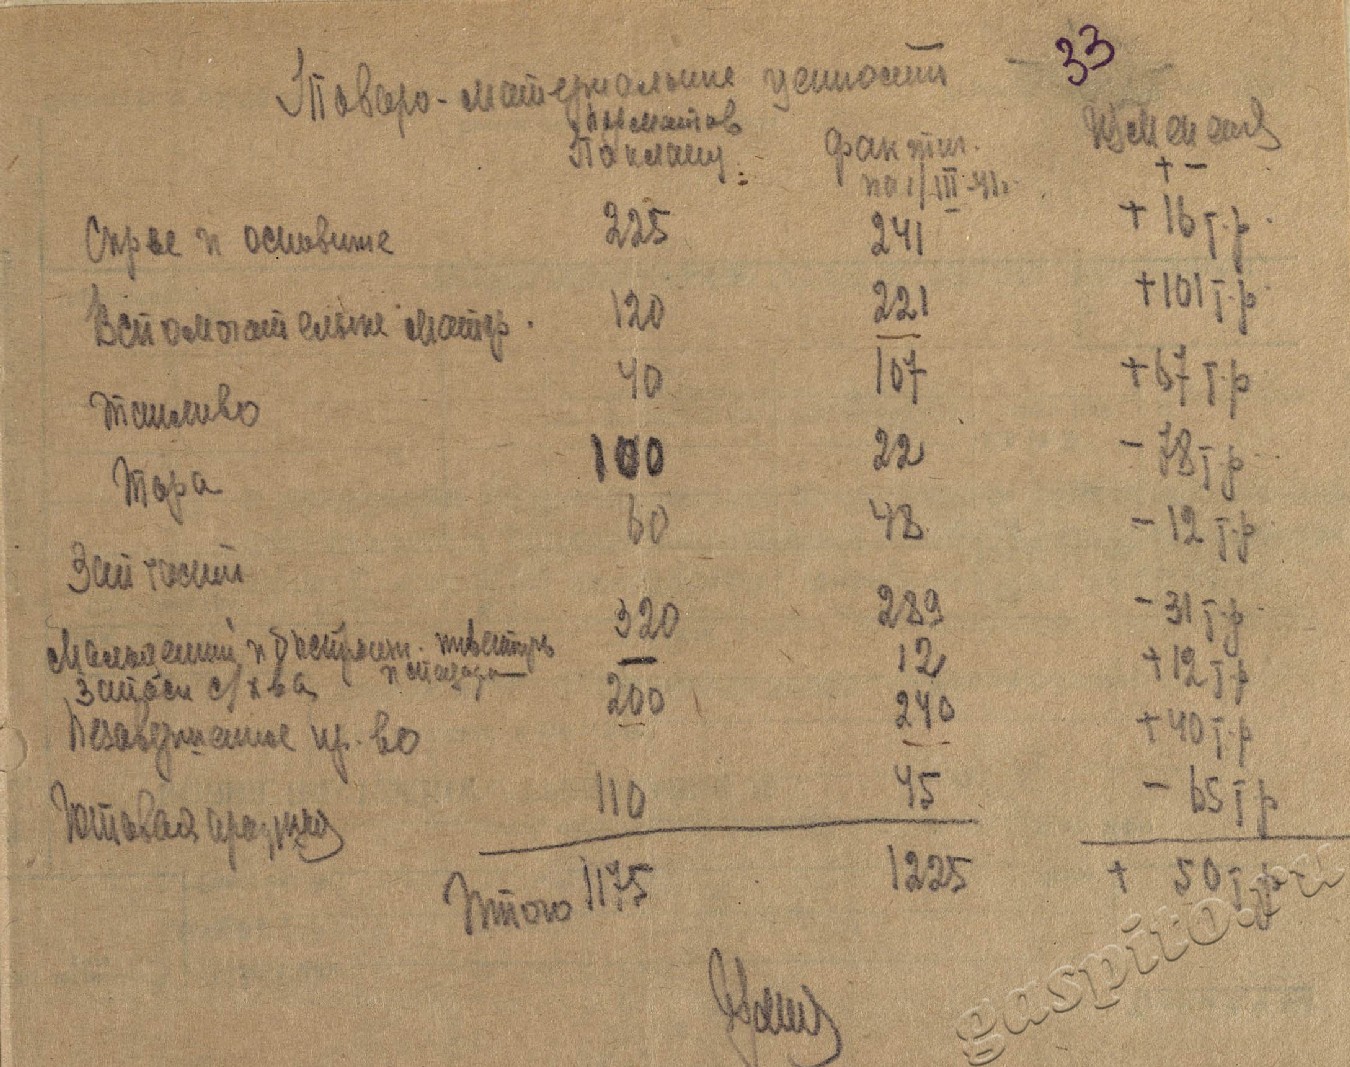 33
Товаро-материальные ценности
Норматив
По плану
фактич.
на 1/III-41г.
Изменения
+ −
Сырье и основные 225 241 + 16 т.р.
Вспомогательные матер. 120 221 +101 т.р
Топливо 40 107 +67 т.р
Тара 100 22 - 78 т.р
Запчасти 60 48 - 12 т.р
Малоценный и быстроизн. инвентарь 320 289 - 31 т.р
Запасы с/х-ва — 12 +12 т.р
Незавершенное пр-во 200 240 +40 т.р
Готовая продукция 110 45 - 65 т р
Итого 1175 1225 + 50 т.р
gaspito.ru